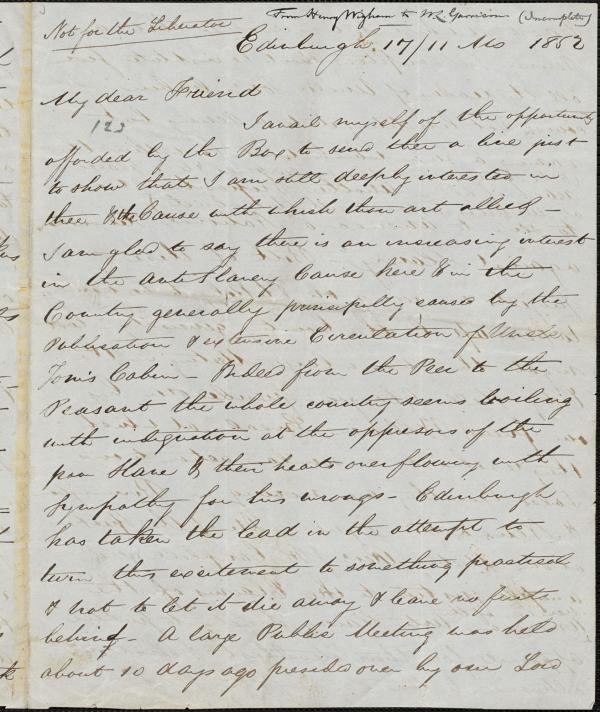 From Henry Wigham to W.L. Garrison (Incomplete)
Not for the Liberator
Edinburgh 17/11 Mo 1852
My dear Friend
123
I avail myself of the opportunity
afforded by the Box to send thee a line just
to show that I am still deeply interested in
thee & the Cause with which thou art allied –
I am glad to say there is an increasing interest
in the Anti Slavery Cause here & in the
Country generally principally caused by the
Publication & extensive Circulation of Uncle
Tom's Cabin – Indeed from the Peer to the
Peasant the whole country seems boiling
with indignation at the oppressors of the
poor Slave & their heats overflowing with
Sympathy for his wrongs – Edinburgh
has taken the lead in the attempt to
turn this excitement to something practical
& not to let it die away & leave no fruit
behind – A large Public Meeting was held
about 10 days ago presided over by our Lord